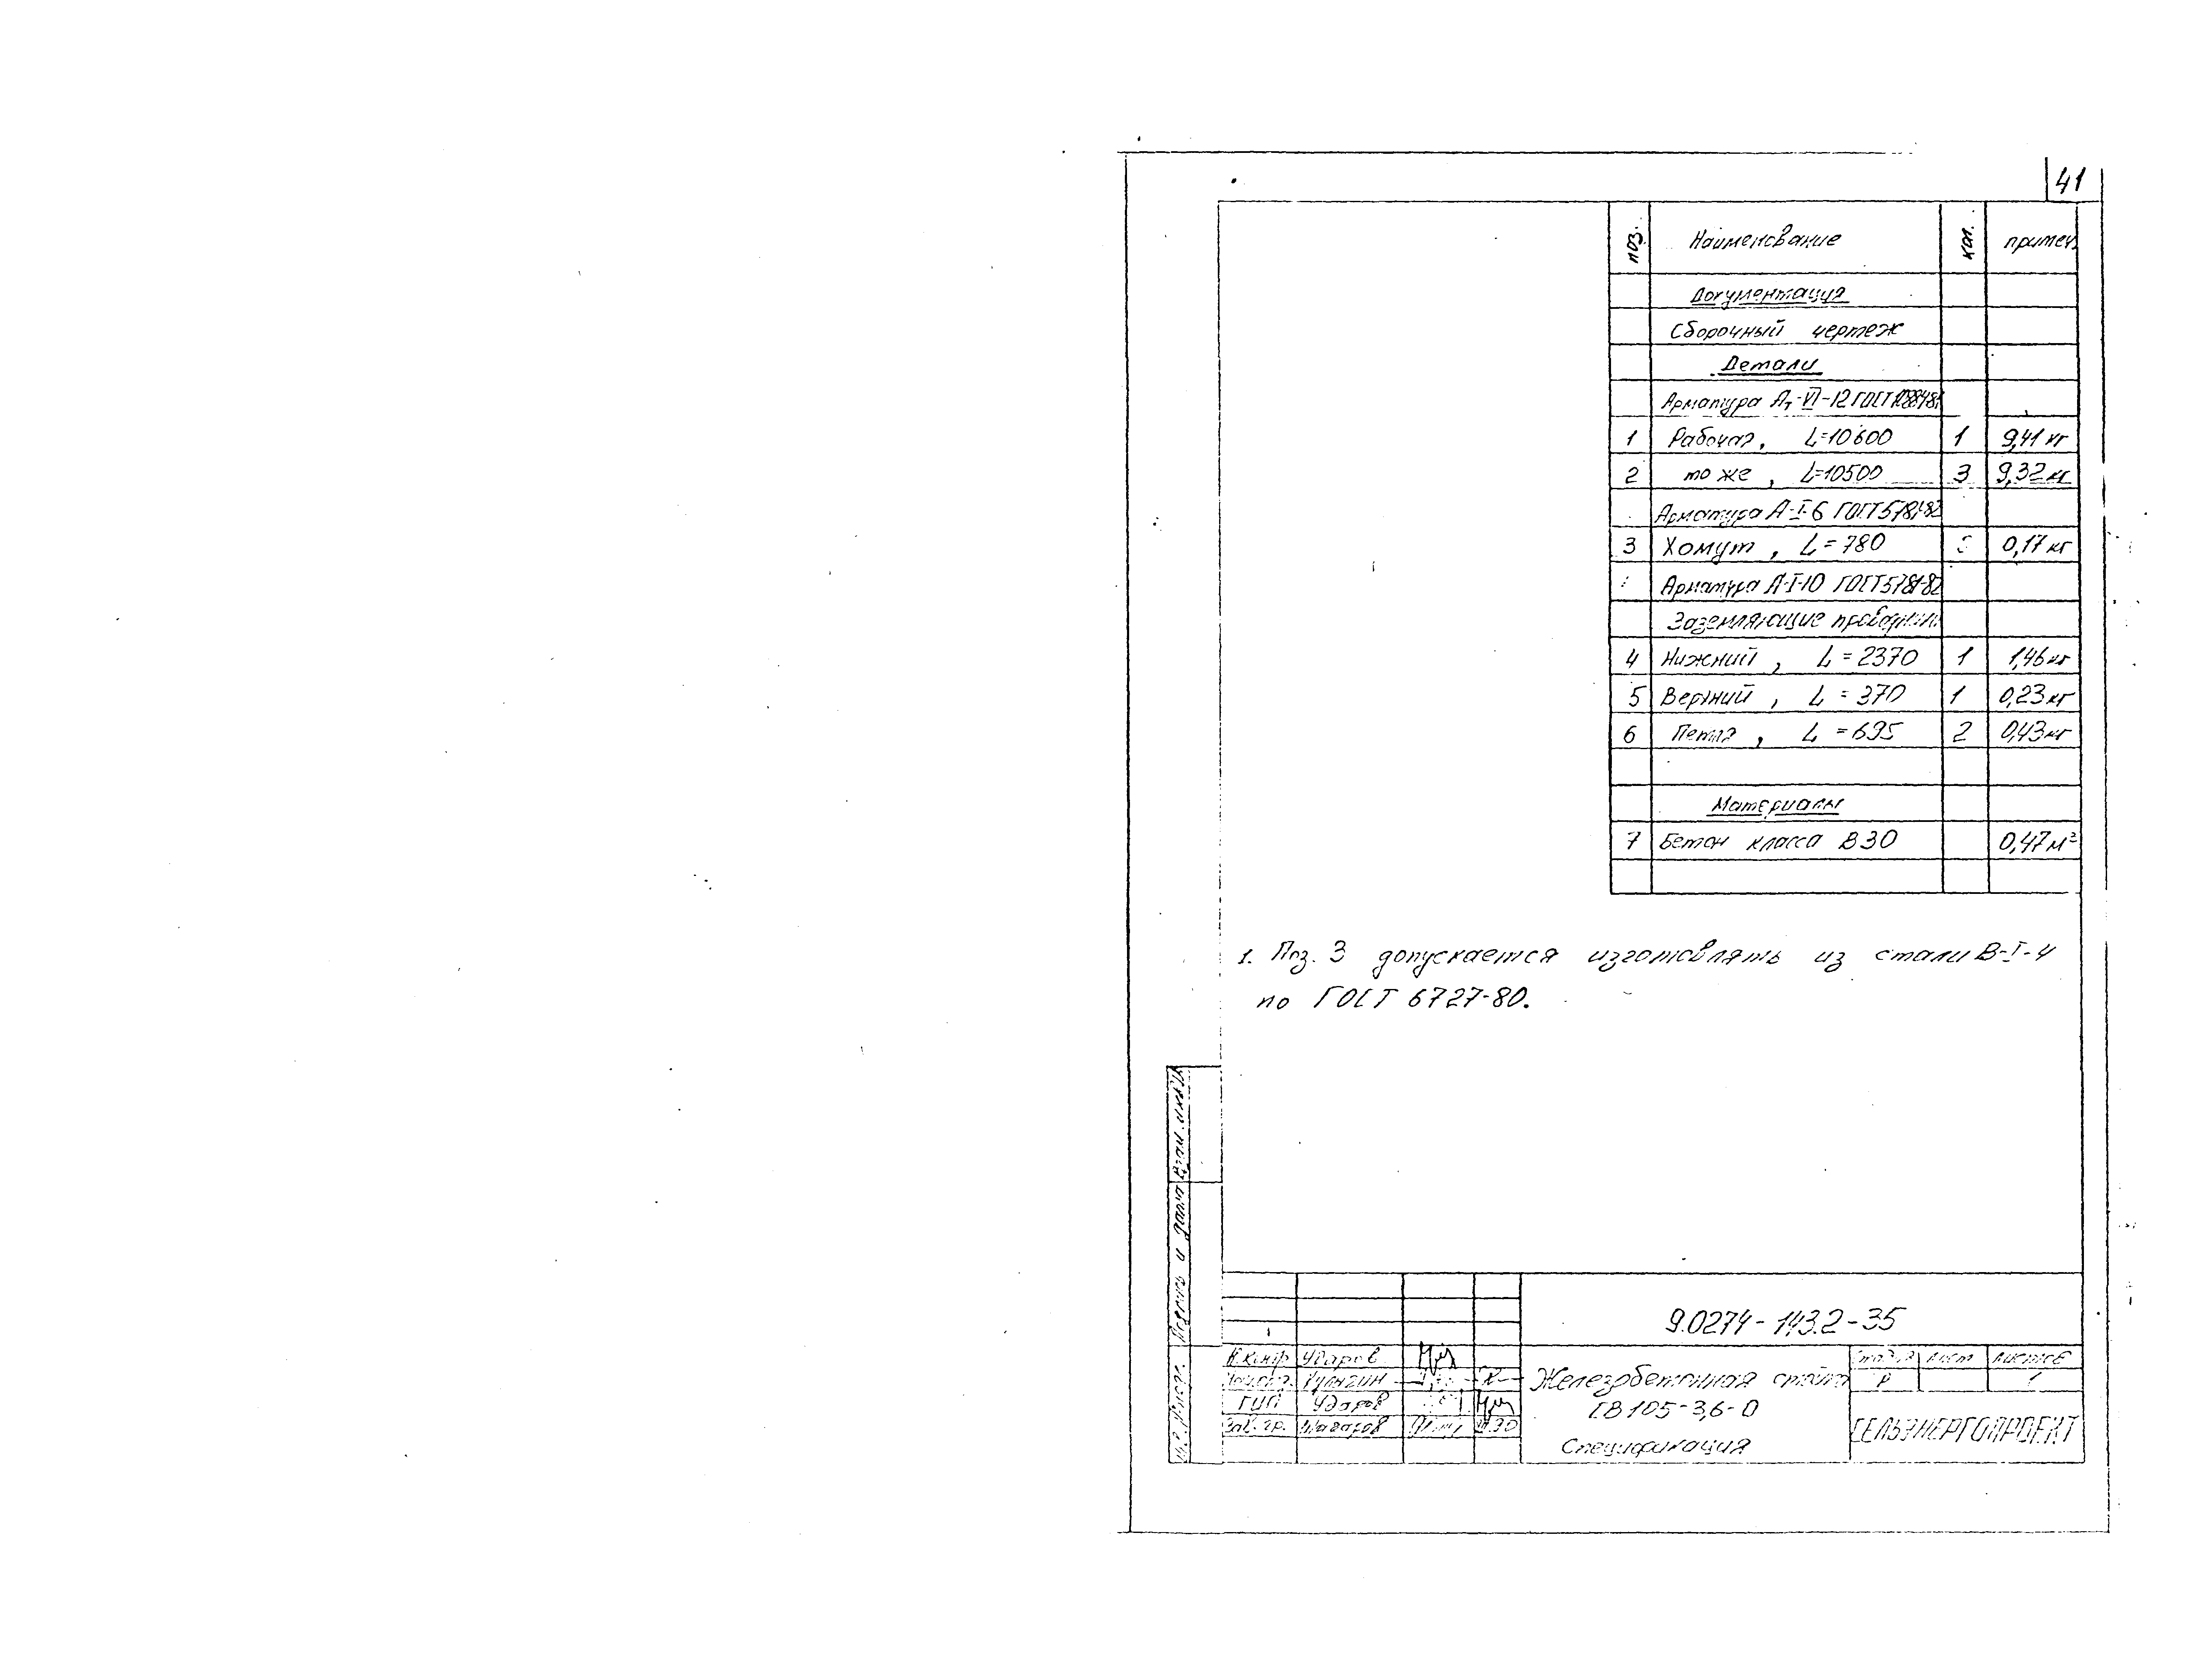 41
поз. Наименование кол. примеч.
Документация
Сборочный чертеж
Детали
Арматура Ат-VI-12 ГОСТ 10884-81
1 Рабочая, L=10600 1 9,41 кг
2 то же, L=10500 3 9,32 кг
Арматура А-I-6 ГОСТ 5781-82
3 Хомут, L=780 0,17 кг
Арматура А-I-10 ГОСТ 5781-82
Заземляющие проводники
4 Нижний, L=2370 1 1,46 кг
5 Верхний, L=370 1 0,23 кг
6 Петля, L=695 2 0,43 кг
Материалы
7 Бетон класса В30 0,47 м³
1. Поз. 3 допускается изготовлять из стали В-I-4
по ГОСТ 6727-80.
Взам. инв. №
Подпись и дата
9.0274-143.2-35
Н.контр Ударов
Кулыгин
ГИП Ударов
Зав. гр.
Железобетонная стойка
СВ 105-3,6-0
Спецификация
Стадия Лист Листов
Р 1
СЕЛЬЭНЕРГОПРОЕКТ